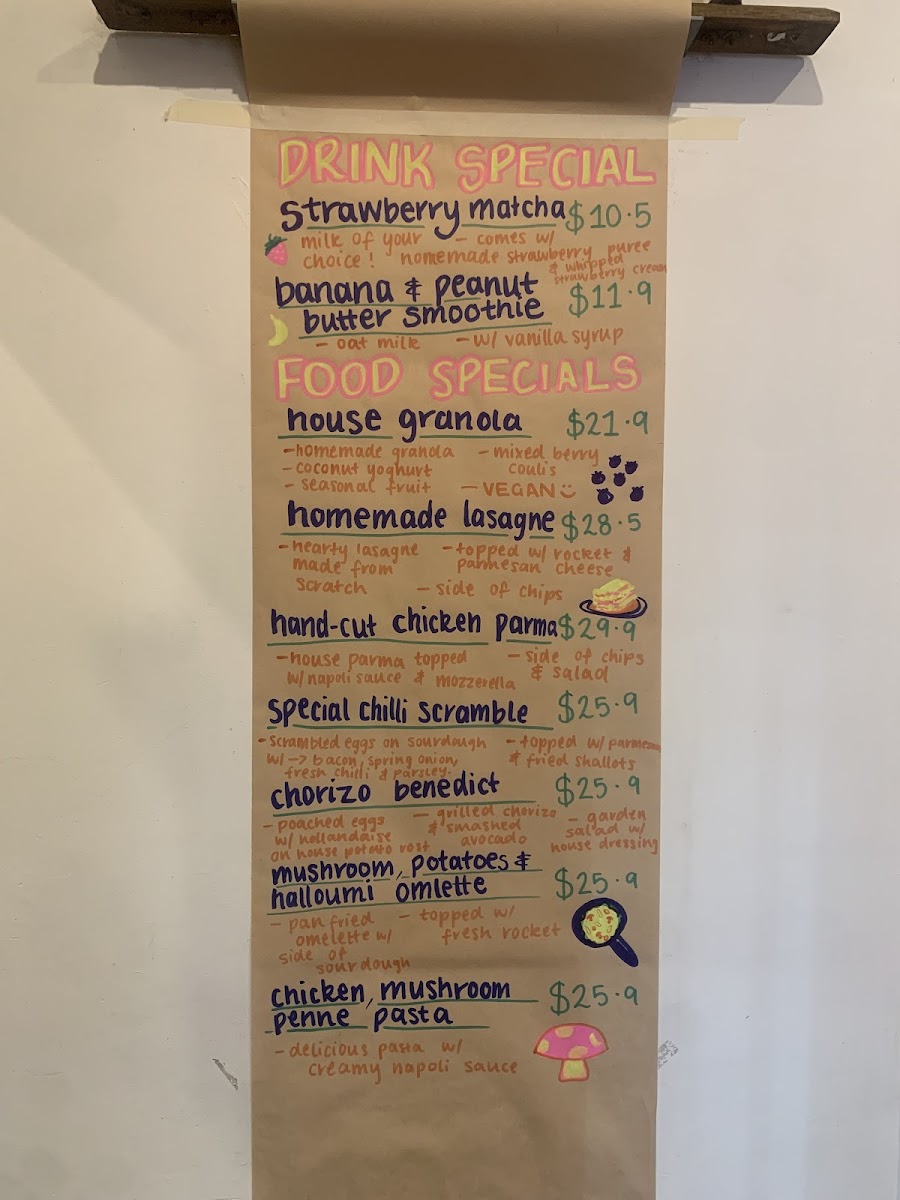 DRINK SPECIAL
strawberry matcha $10.5
milk of your choice!
- comes w/ homemade strawberry puree & whipped strawberry cream
banana & peanut
butter smoothie $11.9
- oat milk - w/ vanilla syrup
FOOD SPECIALS
house granola $21.9
- homemade granola - mixed berry
- coconut yoghurt coulis
- seasonal fruit - VEGAN
homemade lasagne $28.5
- hearty lasagne - topped w/ rocket &
made from parmesan cheese
scratch - side of chips
hand-cut chicken parma $29.9
- house parma topped - side of chips
w/ napoli sauce & mozzerella & salad
special chilli scramble $25.9
- scrambled eggs on sourdough - topped w/ parmesan
w/ -> bacon, spring onion, & fried shallots
fresh chilli & parsley.
chorizo benedict $25.9
- poached eggs - grilled chorizo - garden
w/ hollandaise & smashed salad w/
on house potato rost avocado house dressing
mushroom, potatoes &
halloumi omlette $25.9
- pan fried - topped w/
omelette w/ fresh rocket
side of
sourdough
chicken, mushroom $25.9
penne pasta
- delicious pasta w/
creamy napoli sauce